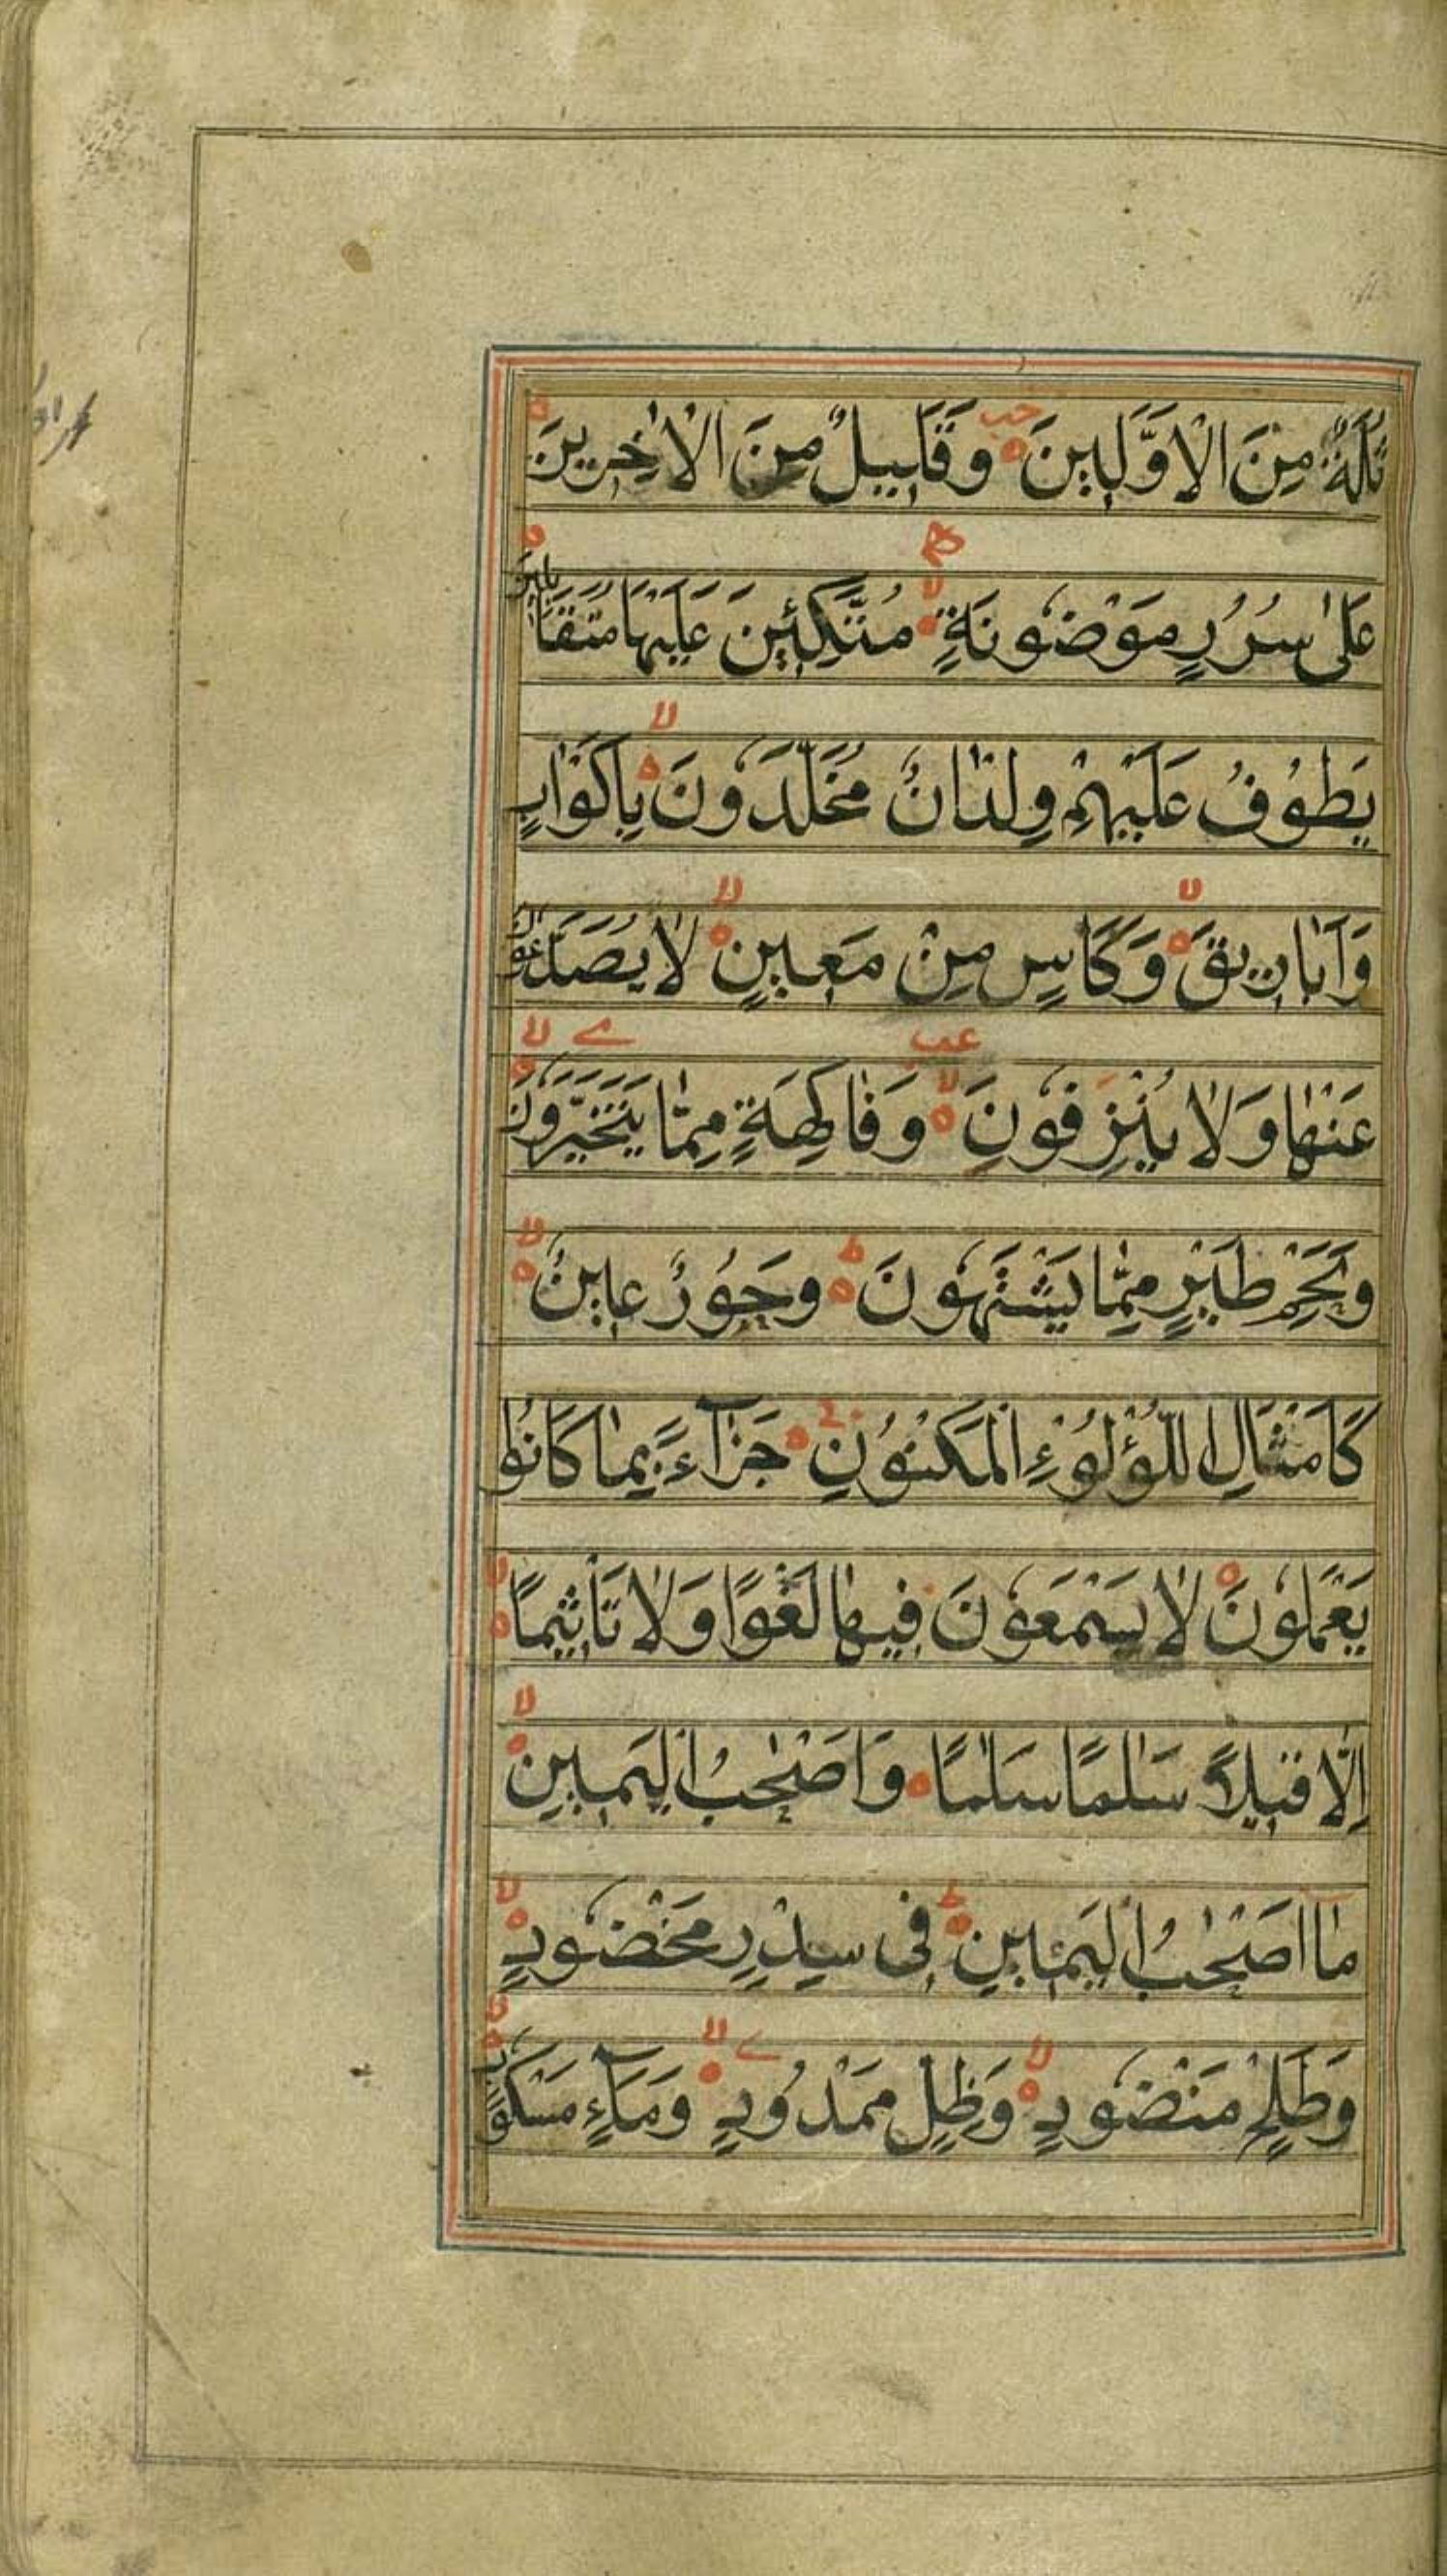 ثُلَّةٌ مِنَ الْاَوَّلِينَ وَقَلِيلٌ مِنَ الْاٰخِرِينَ
عَلٰى سُرُرٍ مَوْضُونَةٍ مُتَّكِئِينَ عَلَيْهَا مُتَقَابِلِينَ
يَطُوْفُ عَلَيْهِمْ وِلْدَانٌ مُخَلَّدُونَ بِاَكْوَابٍ
وَاَبَارِيقَ وَكَاْسٍ مِنْ مَعِينٍ لَا يُصَدَّعُونَ
عَنْهَا وَلَا يُنْزِفُونَ وَفَاكِهَةٍ مِمَّا يَتَخَيَّرُونَ
وَلَحْمِ طَيْرٍ مِمَّا يَشْتَهُونَ وَحُورٌ عِينٌ
كَاَمْثَالِ اللُّؤْلُوءِ الْمَكْنُونِ جَزَآءً بِمَا كَانُوا
يَعْمَلُونَ لَا يَسْمَعُونَ فِيهَا لَغْوًا وَلَا تَاْثِيمًا
اِلَّا قِيلًا سَلٰمًا سَلٰمًا وَاَصْحٰبُ الْيَمِينِ
مَا اَصْحٰبُ الْيَمِينِ فِى سِدْرٍ مَخْضُودٍ
وَطَلْحٍ مَنْضُودٍ وَظِلٍّ مَمْدُودٍ وَمَآءٍ مَسْكُوبٍ